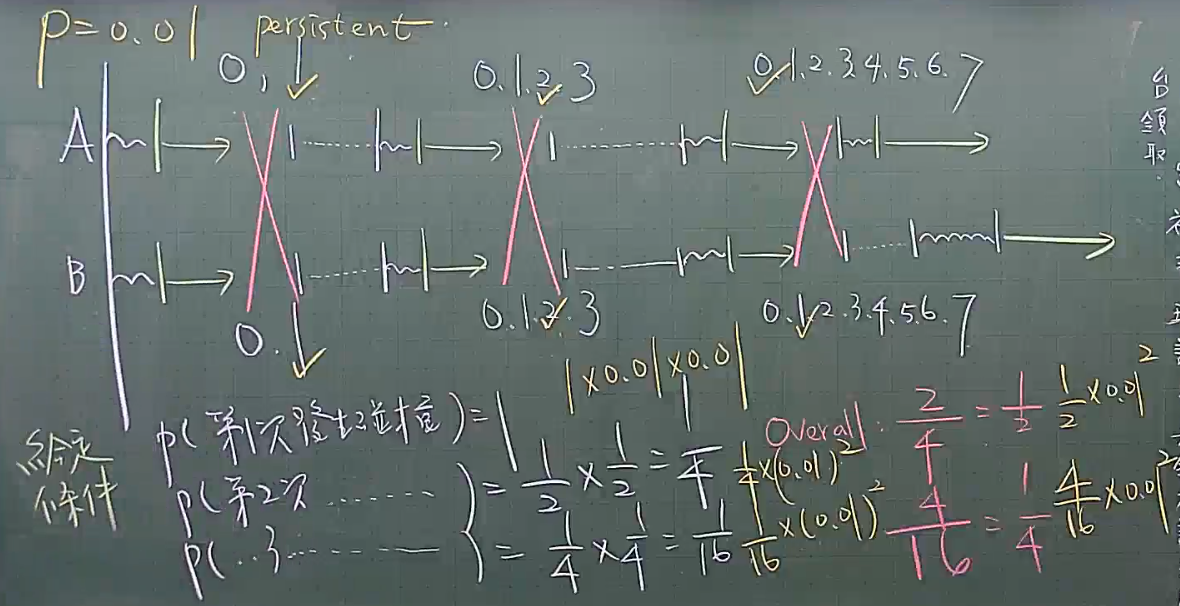 P=0.01 persistent
0, 1
0.1.2.3
0.1.2.3.4.5.6.7
A
B
0.1
0.1.2.3
0.1.2.3.4.5.6.7
台領取
1×0.01×0.01
給定條件
P(第1次發生碰撞)=1
P(第2次 ........)= 1/2 × 1/2 = 1/4 1/4×(0.01)²
P(..3...........)= 1/4 × 1/4 = 1/16 1/16×(0.01)²
Overall: 2/4 = 1/2 1/2×0.01²
4/16 = 1/4 4/16×0.01²